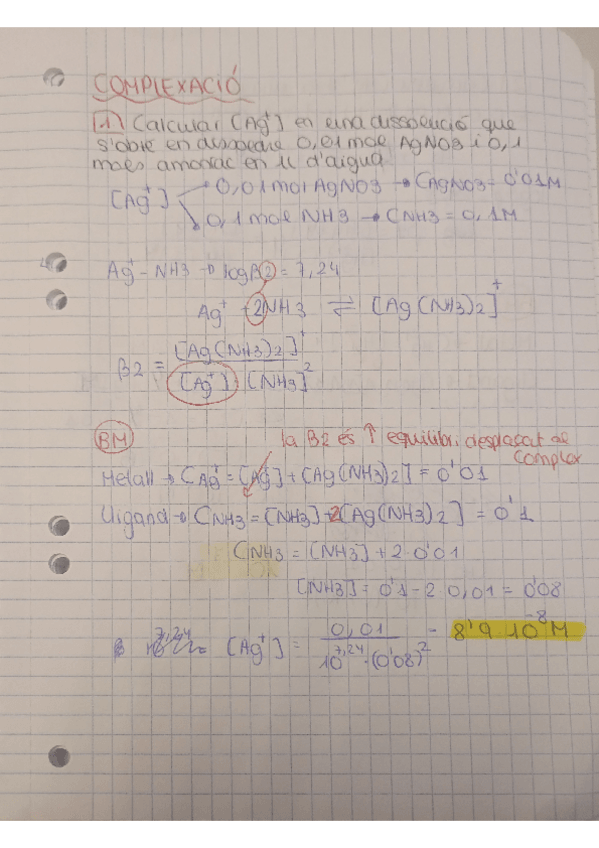 COMPLEXACIÓ
1) Calcular [Ag+] en una dissolució que
s'obté en dissoldre 0,01 mol AgNO3 i 0,1
mols amoníac en 1L d'aigua
[Ag+] 0,01 mol AgNO3 → CAgNO3 = 0'01M
0,1 mol NH3 → CNH3 = 0,1M
Ag+ - NH3 → logβ2 = 7,24
Ag+ + 2NH3 ⇌ [Ag(NH3)2]+
β2 = [Ag(NH3)2]+ / [Ag+] [NH3]2
BM
la β2 és ↑ equilibri desplaçat al
complex
Metall → CAg+ = [Ag+] + [Ag(NH3)2] = 0'01
Lligand → CNH3 = [NH3] + 2[Ag(NH3)2] = 0'1
CNH3 = [NH3] + 2·0'01
[NH3] = 0'1 - 2·0,01 = 0'08
[Ag+] = 0,01 / 10^7,24 · (0'08)^2 = 8'9·10^-8 M